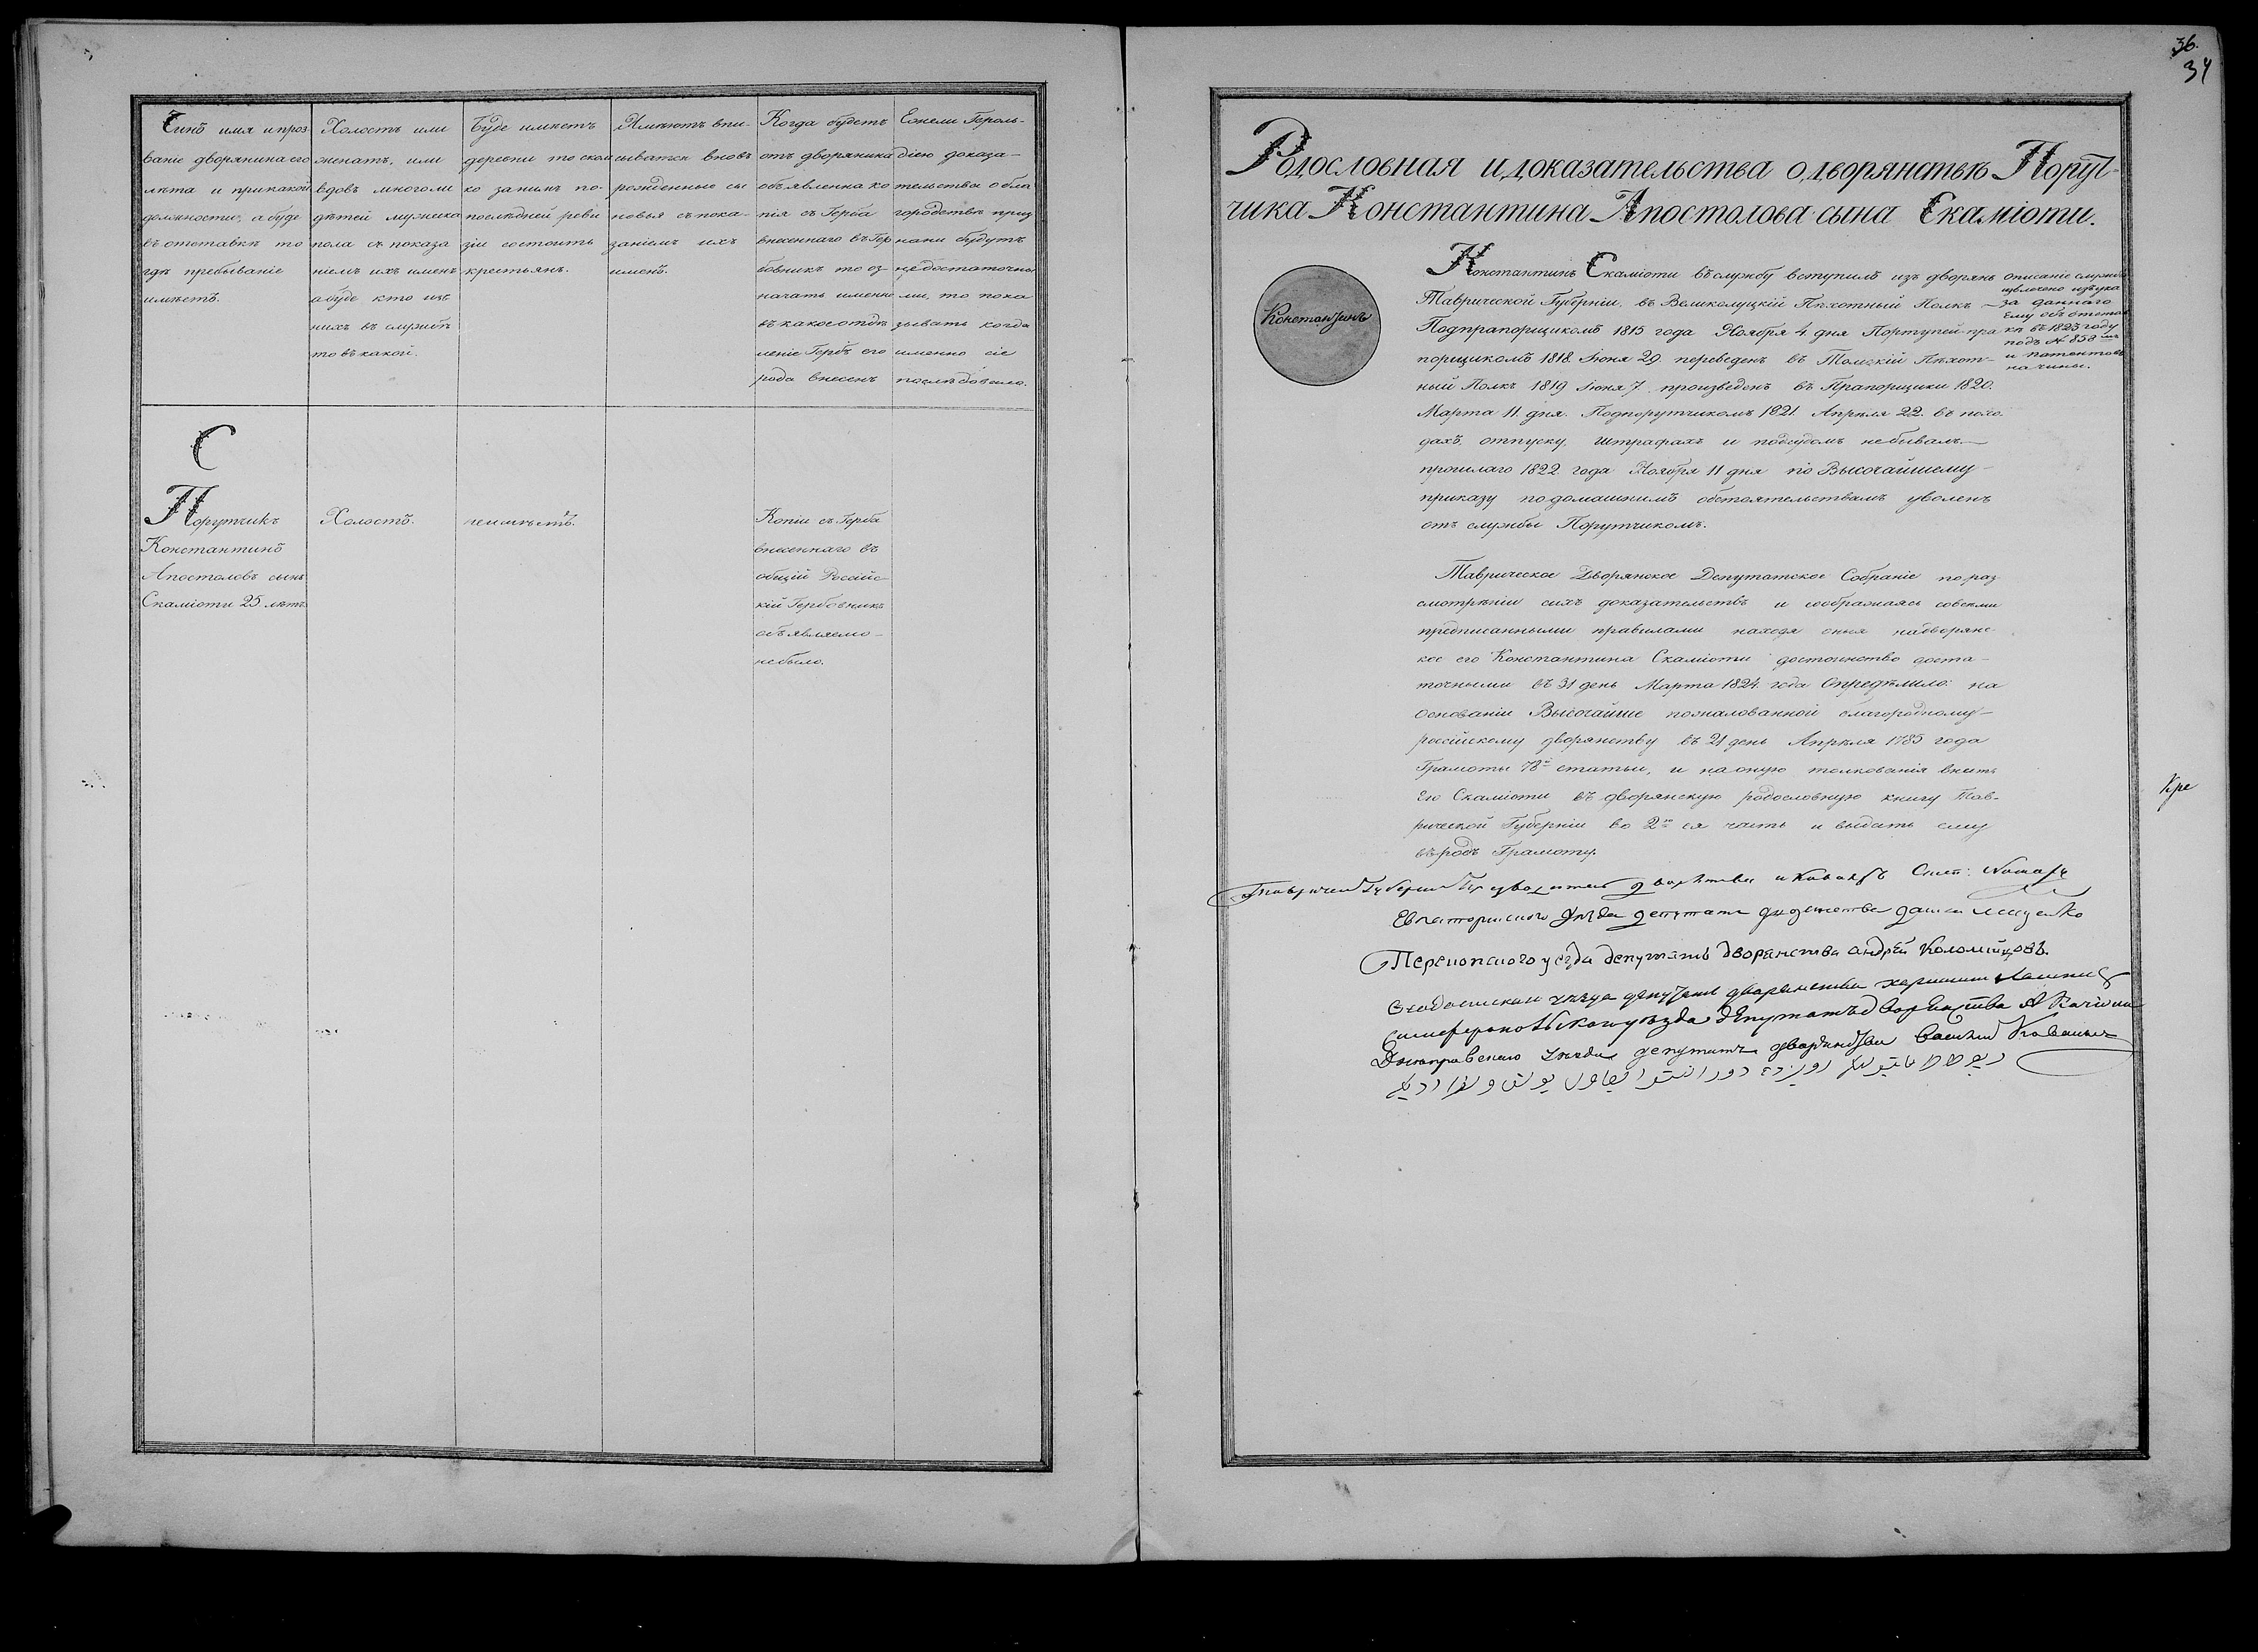 Чинъ имя и проз-
ваніе дворянина его
лѣта и при какой
должности, а буде
въ отставкѣ то
гдѣ пребываніе
имѣетъ.
Холостъ или
женатъ, или
вдовъ многоли
дѣтей мужеска
пола съ показа
ніемъ ихъ именъ
а буде кто изъ
нихъ въ службѣ
то въ какой.
Буде имѣетъ
деревни то сколь
ко за нимъ по-
послѣдней реви
зіи состоитъ
крестьянъ.
Имѣютъ впи-
сыватся вновь
рожденные сы
новья съ пока-
заніемъ ихъ
именъ.
Когда будетъ
отъ дворянина
объявленна ко
пія съ Герба
внесеннаго въ Гер
бовникъ то оз-
начать именно
въ какое отдѣ
леніе Гербъ его
рода внесенъ
Ежели Героль-
діею доказа-
тельства о бла
городствѣ приз
наны будутъ
недостаточны
ми, то пока
зывать когда
именно сіе
послѣдовало.
С
Порутчикъ
Константинъ
Апостоловъ сынъ
Скаміоти 25 лѣтъ
Холостъ.
неимѣетъ.
Копіи съ Герба
внесеннаго въ
общій Россійс-
кій Гербовникъ
объявляемо-
небыло.
36.
34
Родословная и доказательства о дворянствѣ Порут-
чика Константина Апостолова сына Скаміоти.
Константинъ
Константинъ Скаміоти въ службу вступилъ изъ дворянъ
Таврической Губерніи, въ Великолуцкій Пѣхотный Полкъ
Подпрапорщикомъ 1815 года Ноября 4 дня Портупей-пра
порщикомъ 1818. Іюня 29 переведенъ въ Томскій Пѣхот-
ный Полкъ 1819 Іюня 7. произведенъ въ Прапорщики 1820.
Марта 11. дня. Подпорутчикомъ 1821. Апрѣля 22. въ похо
дахъ, отпуску, штрафахъ и подсудомъ небывалъ.
прошлаго 1822 года Ноября 11 дня по Высочайшему
приказу по домашнимъ обстоятельствамъ уволенъ
отъ службы Порутчикомъ.
описаніе службы
извлечено изъ ука
за даннаго
ему объ отстав
кѣ въ 1823 году
подъ № 858 мъ
и патентовъ
на чины.
Таврическое Дворянское Депутатское Собраніе по раз
смотрѣніи сихъ доказательствъ и соображаясь совсѣми
предписанными правилами находя оныя на дворянс-
кое его Константина Скаміоти достоинство доста-
точными въ 31 день Марта 1824. года Опредѣлило: на
основаніи Высочайше пожалованной благородному
россійскому дворянству въ 21 день Апрѣля 1785 года
Грамоты 78й статьи, и на оную толкованія внесть
Его Скаміоти въ дворянскую родословную книгу Тав-
рической Губерніи во 2ю ея часть и выдать ему
въ родъ Грамоту.
Кре
Губерніи дворянства и Кавалеръ
Евпаторійскаго уѣзда депутатъ
Перекопского уезда депутатъ дворянства Андрей Коломийцовъ.
уезда депутатъ дворянства
Симферопольского уѣзда депутатъ дворянства А
Днепровскаго уѣзда депутатъ дворянства Василий